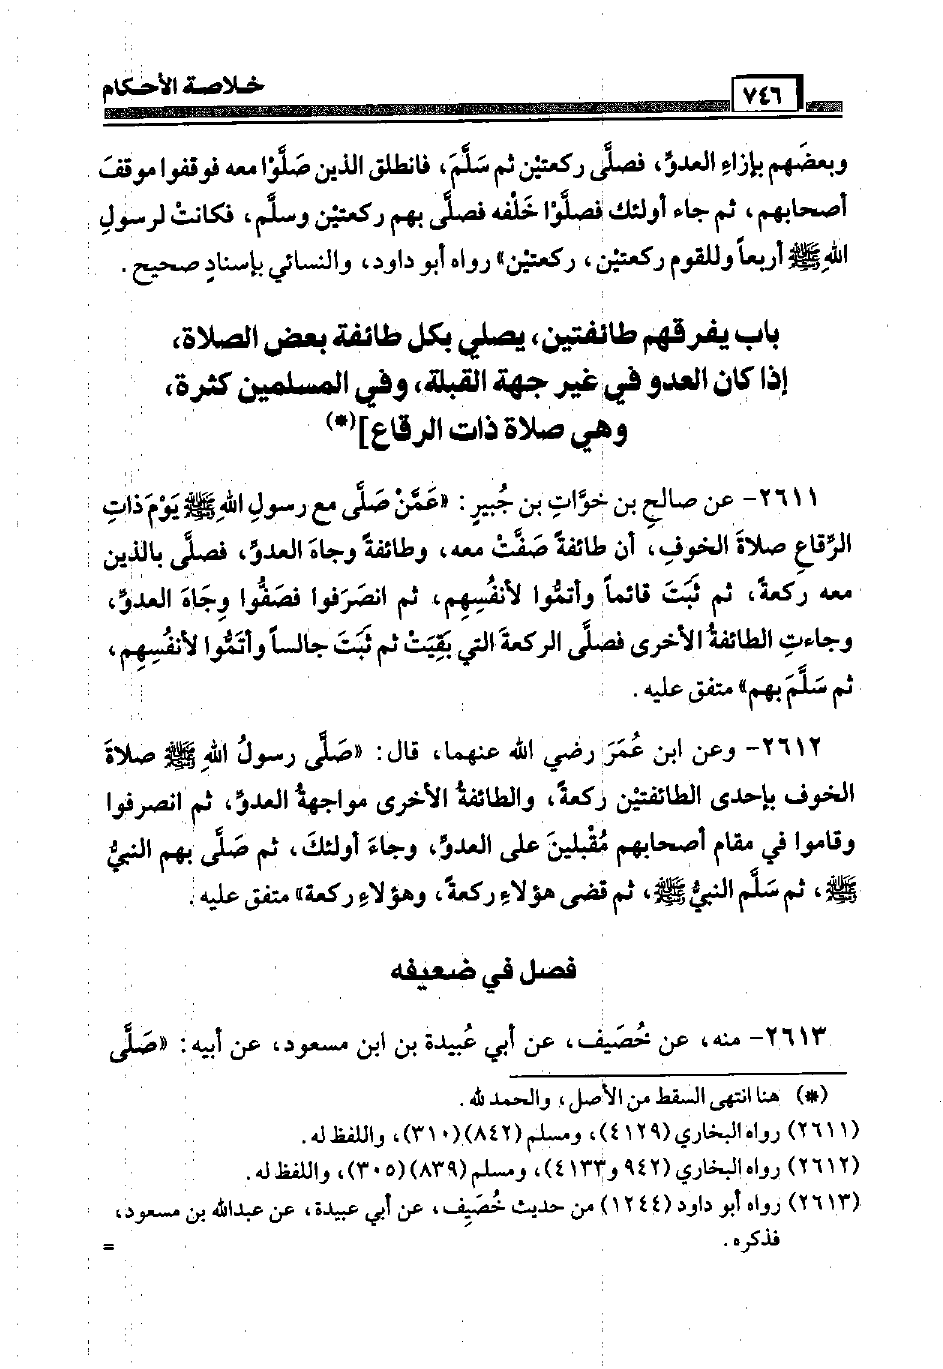 خلاصة الأحكام
٧٤٦
وبعضَهم بإزاءِ العدوِّ، فصلَّى ركعتيْن ثم سَلَّمَ، فانطلق الذين صَلَّوْا معه فوقفوا موقفَ
أصحابهم، ثم جاء أولئك فصلَّوْا خَلْفه فصلَّى بهم ركعتيْن وسلَّم، فكانتْ لرسولِ
اللهِ ﷺ أربعاً وللقوم ركعتيْن، ركعتيْن» رواه أبو داود، والنسائي بإسنادٍ صحيح.
باب يفرقهم طائفتين، يصلي بكل طائفة بعض الصلاة،
إذا كان العدو في غير جهة القبلة، وفي المسلمين كثرة،
وهي صلاة ذات الرقاع](*)
٢٦١١- عن صالحِ بن خوَّاتِ بن جُبيرٍ: «عَمَّنْ صَلَّى مع رسولِ اللهِ ﷺ يَوْمَ ذاتِ
الرِّقاعِ صلاةَ الخوفِ، أن طائفةً صَفَّتْ معه، وطائفةً وجاهَ العدوِّ، فصلَّى بالذين
معه ركعةً، ثم ثَبَتَ قائماً وأتمُّوا لأنفُسِهِم، ثم انصَرَفوا فصَفُّوا وِجَاهَ العدوِّ،
وجاءتِ الطائفةُ الأخرى فصلَّى الركعةَ التي بَقِيَتْ ثم ثَبَتَ جالساً وأتَمُّوا لأنفُسِهِم،
ثم سَلَّمَ بهم» متفق عليه.
٢٦١٢- وعن ابن عُمَرَ رضي الله عنهما، قال: «صَلَّى رسولُ اللهِ ﷺ صلاةَ
الخوف بإحدى الطائفتيْن ركعةً، والطائفةُ الأخرى مواجهةُ العدوِّ، ثم انصرفوا
وقاموا في مقام أصحابهم مُقْبلينَ على العدوِّ، وجاءَ أولئكَ، ثم صَلَّى بهم النبيُّ
ﷺ، ثم سَلَّم النبيُّ ﷺ، ثم قضى هؤلاءِ ركعةً، وهؤلاءِ ركعة» متفق عليه.
فصل في ضعيفه
٢٦١٣- منه، عن خُصَيف، عن أبي عُبيدة بن ابن مسعود، عن أبيه: «صَلَّى
(*) هنا انتهى السقط من الأصل، والحمد لله.
(٢٦١١) رواه البخاري (٤١٢٩)، ومسلم (٨٤٢)(٣١٠)، واللفظ له.
(٢٦١٢) رواه البخاري (٩٤٢ و٤١٣٣)، ومسلم (٨٣٩)(٣٠٥)، واللفظ له.
(٢٦١٣) رواه أبو داود (١٢٤٤) من حديث خُصَيِف، عن أبي عبيدة، عن عبدالله بن مسعود،
فذكره.
=